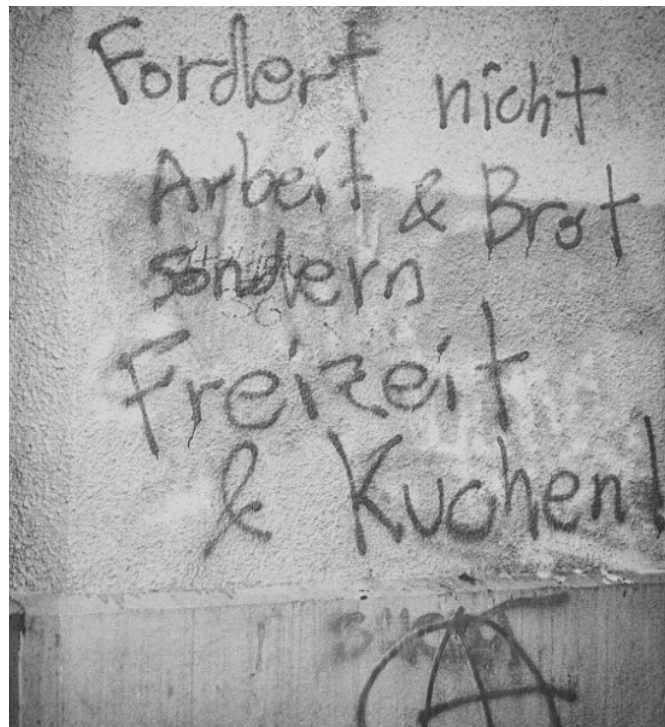 Fordert nicht
Arbeit & Brot
sondern
Freizeit
& Kuchen!